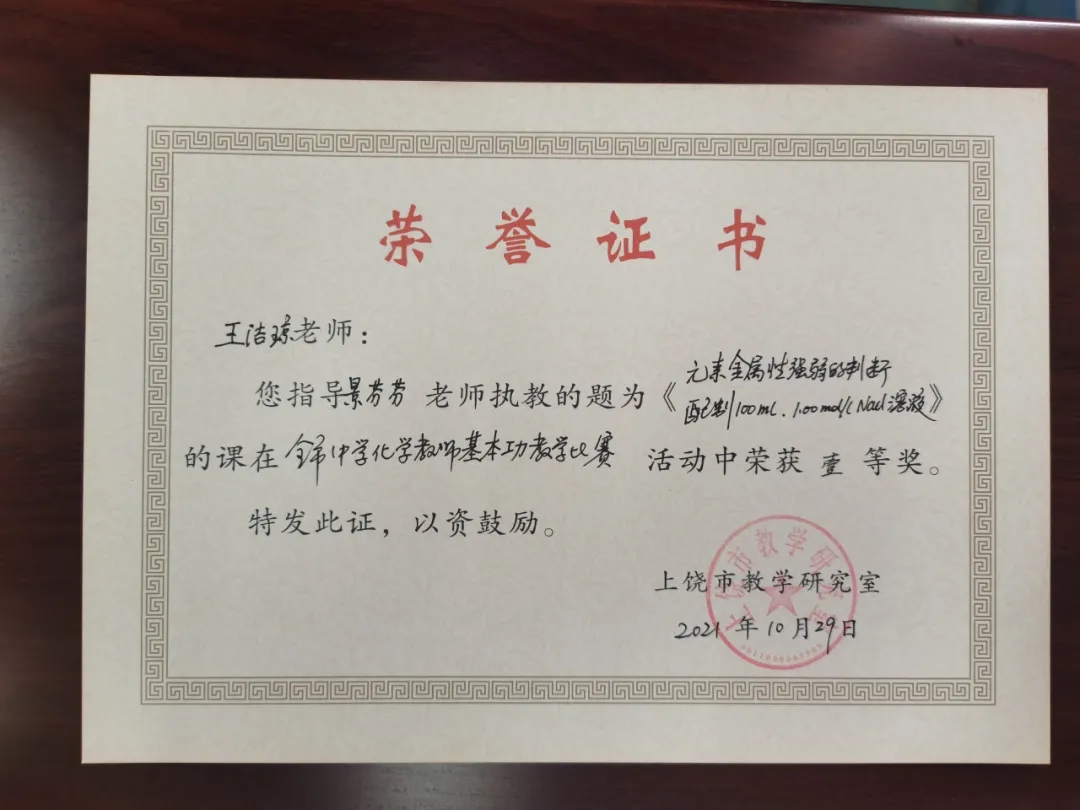 荣誉证书
王洁琼老师：
您指导景芬芬 老师执教的题为《元素金属性强弱的判断
配制100mL.1.00mol/L Nacl溶液》
的课在 全市中学化学教师基本功教学比赛 活动中荣获 壹 等奖。
特发此证，以资鼓励。
上饶市教学研究室
上饶市教学研究室
2021 年 10 月 29 日